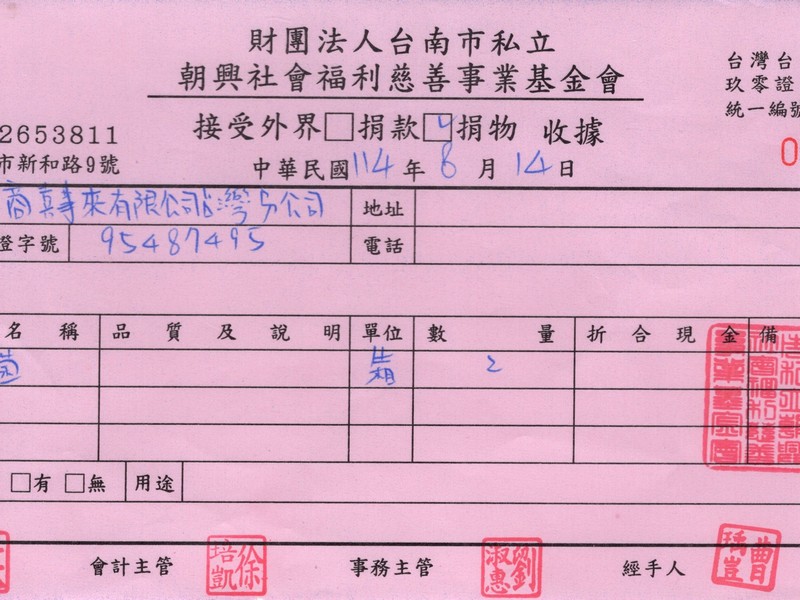 財團法人台南市私立
朝興社會福利慈善事業基金會
台灣台
玖零證
統一編號
2653811
市新和路9號
接受外界□捐款☑捐物 收據
0
中華民國114年8月14日
商真事來有限公司台灣分公司 地址
證字號 95487495 電話
名稱 品質及說明 單位 數量 折合現金 備
箱 2
□有 □無 用途
會計主管 徐培凱 事務主管 劉淑惠 經手人 曹瑀豈